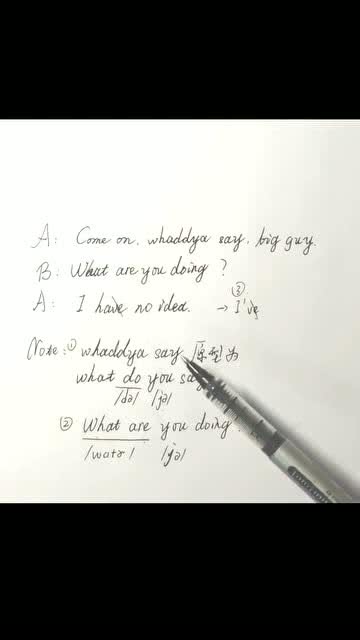 A: Come on, whaddya say, big guy.
B: What are you doing?
A: I have no idea. → ③ I've
Note: ① whaddya say 原型为
what do you say
/də/ /jə/
② What are you doing
/watər/ /jə/